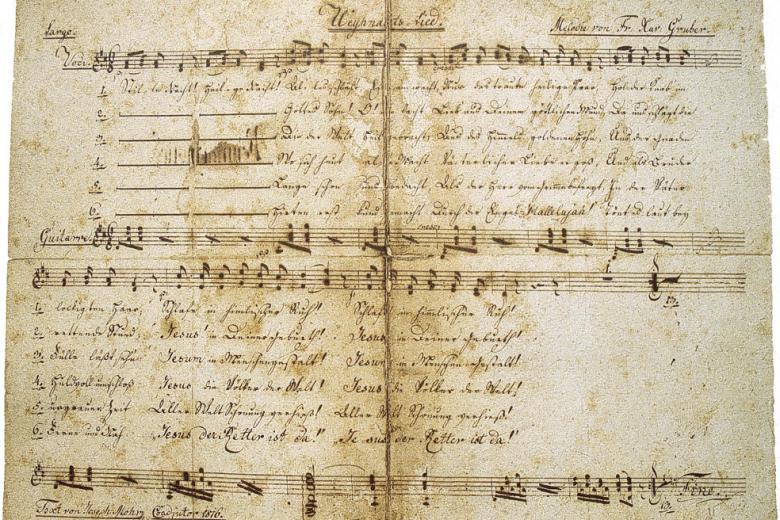 Weyhnachts-Lied.
Largo. Melodie von Fr. Xav. Gruber.
1. Stille Nacht! Heilige Nacht! Alles schläft. Einsam wacht Nur das traute heilige Paar. Holder Knab im
2. Gottes Sohn! O! wie lacht Lieb aus Deinem göttlichen Mund, Da uns schlägt die
3. Die der Welt Heil gebracht, Aus des Himmels goldenen Höhn, Aus der Gnaden
4. Wo sich heut alle Macht Väterlicher Liebe ergoß, Und als Bruder
5. Lange schon uns bedacht, Als der Herr vom Grimme befreyt, In der Väter
6. Hirten erst kund gemacht Durch der Engel Hallelujah! Tönt es laut bey
Guitarre
1. lockigten Haar, Schlafe in himlischer Ruh! Schlafe in himlischer Ruh!
2. rettende Stund. Jesus! in Deiner Geburth! Jesus in Deiner Geburth!
3. Fülle läßt sehn Jesum in Menschengestalt! Jesum in Menschengestalt!
4. Huldvoll umschloß Jesus die Völker der Welt! Jesus die Völker der Welt!
5. urgrauer Zeit Aller Welt Schonung verhieß! Aller Welt Schonung verhieß!
6. Ferne und Nah Jesus der Retter ist da! Jesus der Retter ist da!
Fine.
Text von Joseph Mohr Coadjutor 1816.